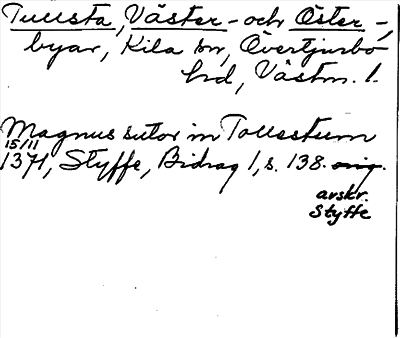 Tullsta, Väster- och Öster-,
byar, Kila sn, Övertjurbo
hrd, Västm. l.
Magnus sutor in Tollestum
15/11
1371, Styffe, Bidrag 1, s. 138. orig.
avskr.
Styffe